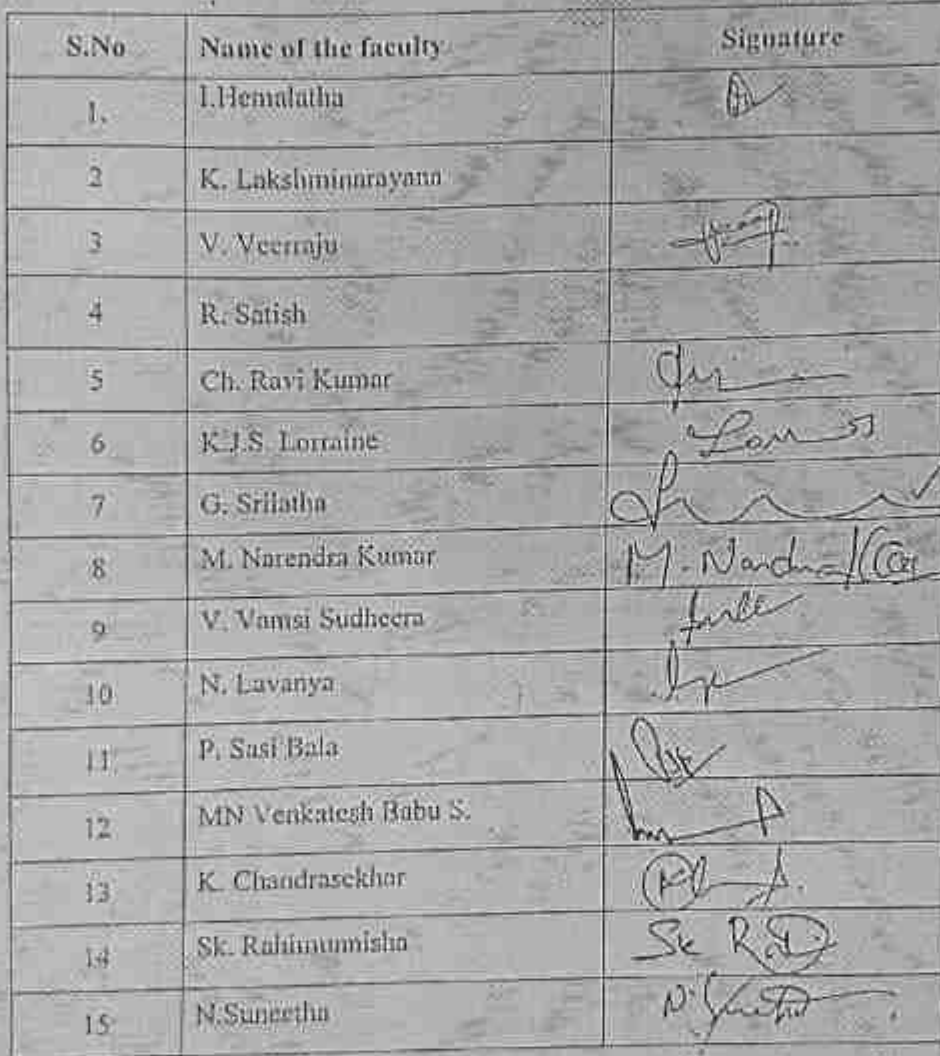 S.No Name of the faculty Signature
1. I.Hemalatha
2 K. Lakshminarayana
3 V. Veerraju
4 R. Satish
5 Ch. Ravi Kumar
6 K.J.S. Lorraine
7 G. Srilatha
8 M. Narendra Kumar M. Narendra
9 V. Vamsi Sudheera
10 N. Lavanya
11 P. Sasi Bala
12 MN Venkatesh Babu S.
13 K. Chandrasekhar
14 Sk. Rahimumisha Sk
15 N.Suneetha N.